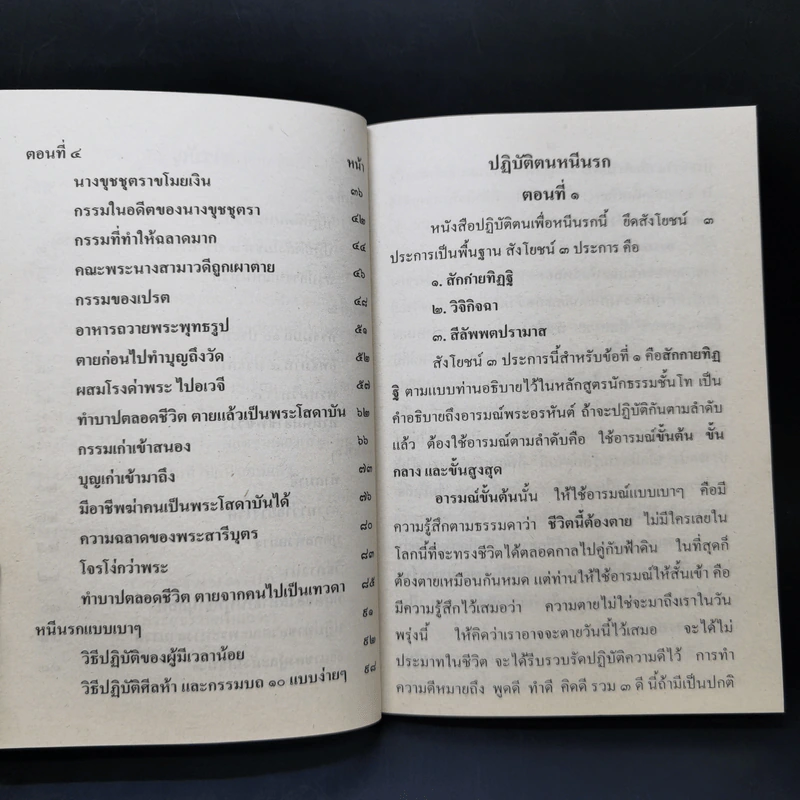 ตอนที่ ๔
หน้า
นางขุชชุตราขโมยเงิน ๓๖
กรรมในอดีตของนางขุชชุตรา ๔๒
กรรมที่ทำให้ฉลาดมาก ๔๔
คณะพระนางสามาวดีถูกเผาตาย ๔๖
กรรมของเปรต ๔๘
อาหารถวายพระพุทธรูป ๕๑
ตายก่อนไปทำบุญถึงวัด ๕๒
ผสมโรงด่าพระ ไปอเวจี ๕๗
ทำบาปตลอดชีวิต ตายแล้วเป็นพระโสดาบัน ๖๒
กรรมเก่าเข้าสนอง ๖๖
บุญเก่าเข้ามาถึง ๗๓
มีอาชีพฆ่าคนเป็นพระโสดาบันได้ ๗๖
ความฉลาดของพระสารีบุตร ๘๐
โจรโง่กว่าพระ ๘๓
ทำบาปตลอดชีวิต ตายจากคนไปเป็นเทวดา ๘๕
หนีนรกแบบเบาๆ ๙๑
วิธีปฏิบัติของผู้มีเวลาน้อย ๙๒
วิธีปฏิบัติศีลห้า และกรรมบถ ๑๐ แบบง่ายๆ ๙๘
ปฏิบัติตนหนีนรก
ตอนที่ ๑
หนังสือปฏิบัติตนเพื่อหนีนรกนี้ ยึดสังโยชน์ ๓
ประการเป็นพื้นฐาน สังโยชน์ ๓ ประการ คือ
๑. สักก่ายทิฏฐิ
๒. วิจิกิจฉา
๓. สีลัพพตปรามาส
สังโยชน์ ๓ ประการนี้สำหรับข้อที่ ๑ คือสักกายทิฏ
ฐิ ตามแบบท่านอธิบายไว้ในหลักสูตรนักธรรมชั้นโท เป็น
คำอธิบายถึงอารมณ์พระอรหันต์ ถ้าจะปฏิบัติกันตามลำดับ
แล้ว ต้องใช้อารมณ์ตามลำดับคือ ใช้อารมณ์ขั้นต้น ขั้น
กลาง และขั้นสูงสุด
อารมณ์ขั้นต้นนั้น ให้ใช้อารมณ์แบบเบาๆ คือมี
ความรู้สึกตามธรรมดาว่า ชีวิตนี้ต้องตาย ไม่มีใครเลยใน
โลกนี้ที่จะทรงชีวิตได้ตลอดกาลไปคู่กับฟ้าดิน ในที่สุดก็
ต้องตายเหมือนกันหมด แต่ท่านให้ใช้อารมณ์ให้สั้นเข้า คือ
มีความรู้สึกไว้เสมอว่า ความตายไม่ใช่จะมาถึงเราในวัน
พรุ่งนี้ ให้คิดว่าเราอาจจะตายวันนี้ไว้เสมอ จะได้ไม่
ประมาทในชีวิต จะได้รีบรวบรัดปฏิบัติความดีไว้ การทำ
ความดีหมายถึง พูดดี ทำดี คิดดี รวม ๓ ดี นี้ถ้ามีเป็นปกติ